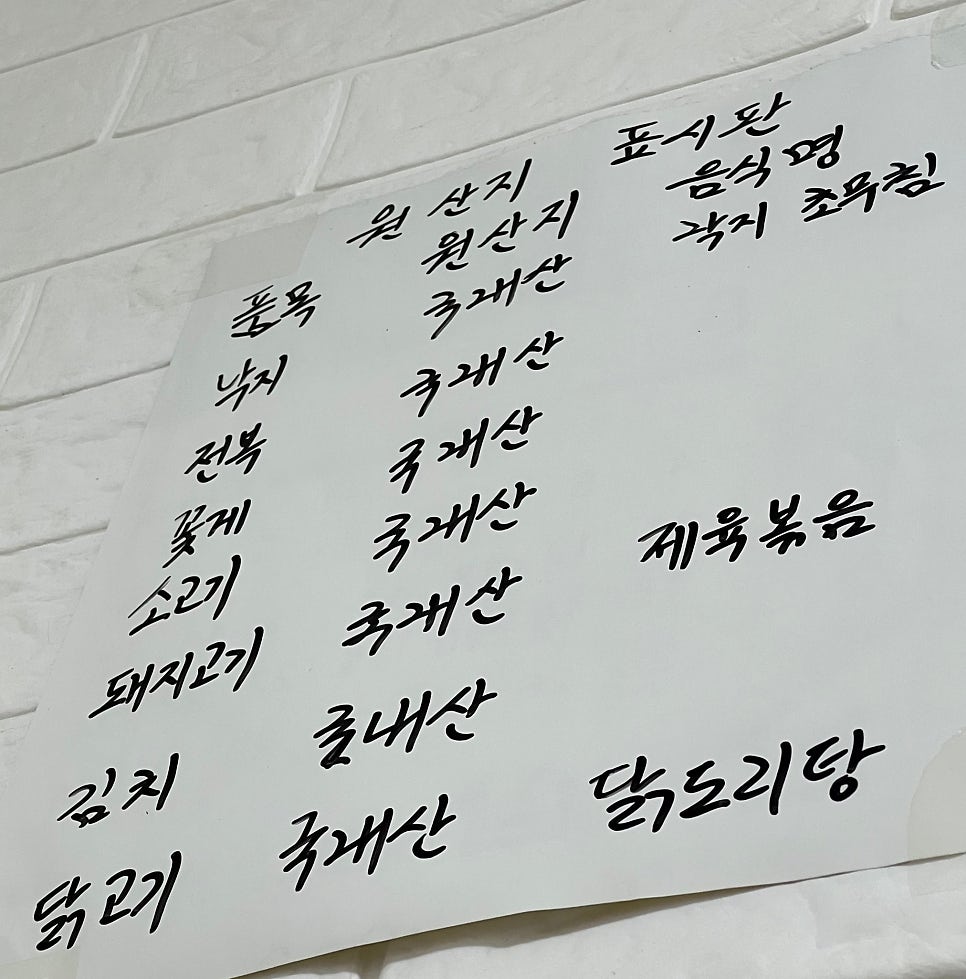 원산지 표시판
품목 원산지 음식명
낙지 국내산 낙지 초무침
전복 국내산
꽃게 국내산
소고기 국내산
돼지고기 국내산 제육볶음
김치 국내산
닭고기 국내산 닭도리탕